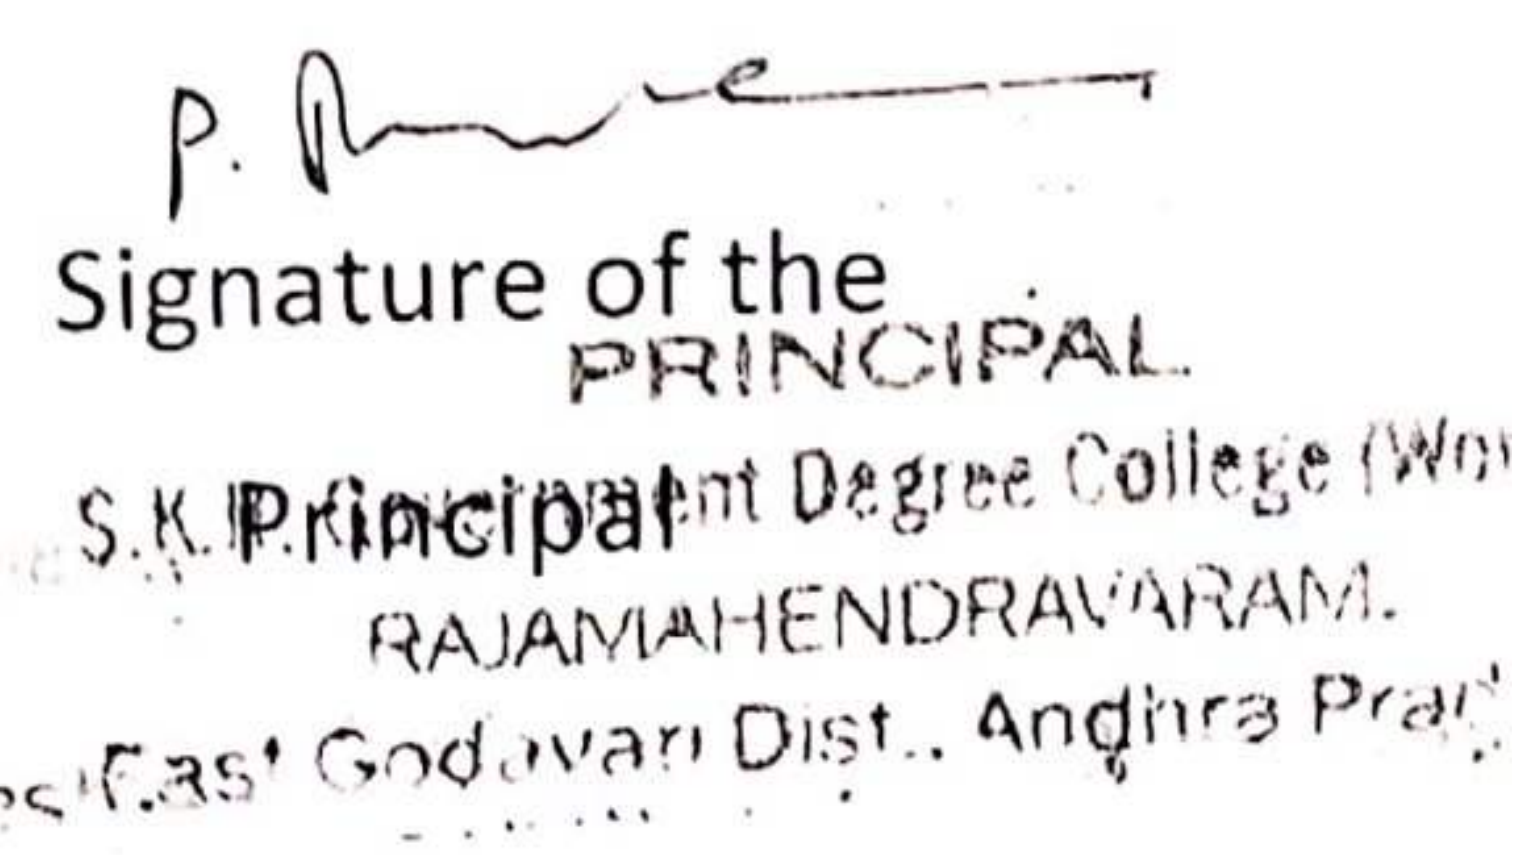 P.
Signature of the
PRINCIPAL.
S.K.R. Principal Degree College
RAJAMAHENDRAVARAM.
East Godavari Dist., Andhra